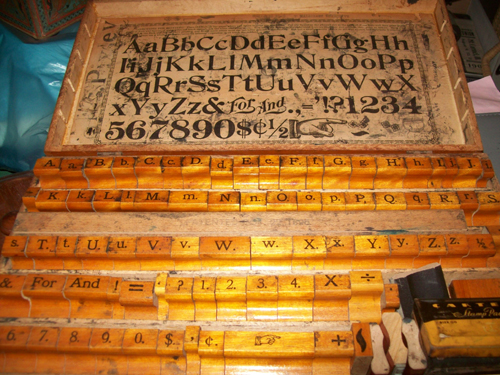 AaBbCcDdEeFfGgHh
IiJjKkLlMmNnOoPp
QqRrSsTtUuVvWwX
xYyZz& For And .,='!?1234
567890$¢½
A a B b C c D d E e F f G g H h I i
K k L l M m N n O o P p Q q R r S
s. T. t U u V v. W. w. X x Y y Z z. ½
& For And ! = ' ? 1. 2. 3. 4. X ÷
6. 7. 8. 9. 0. $. ¢. +